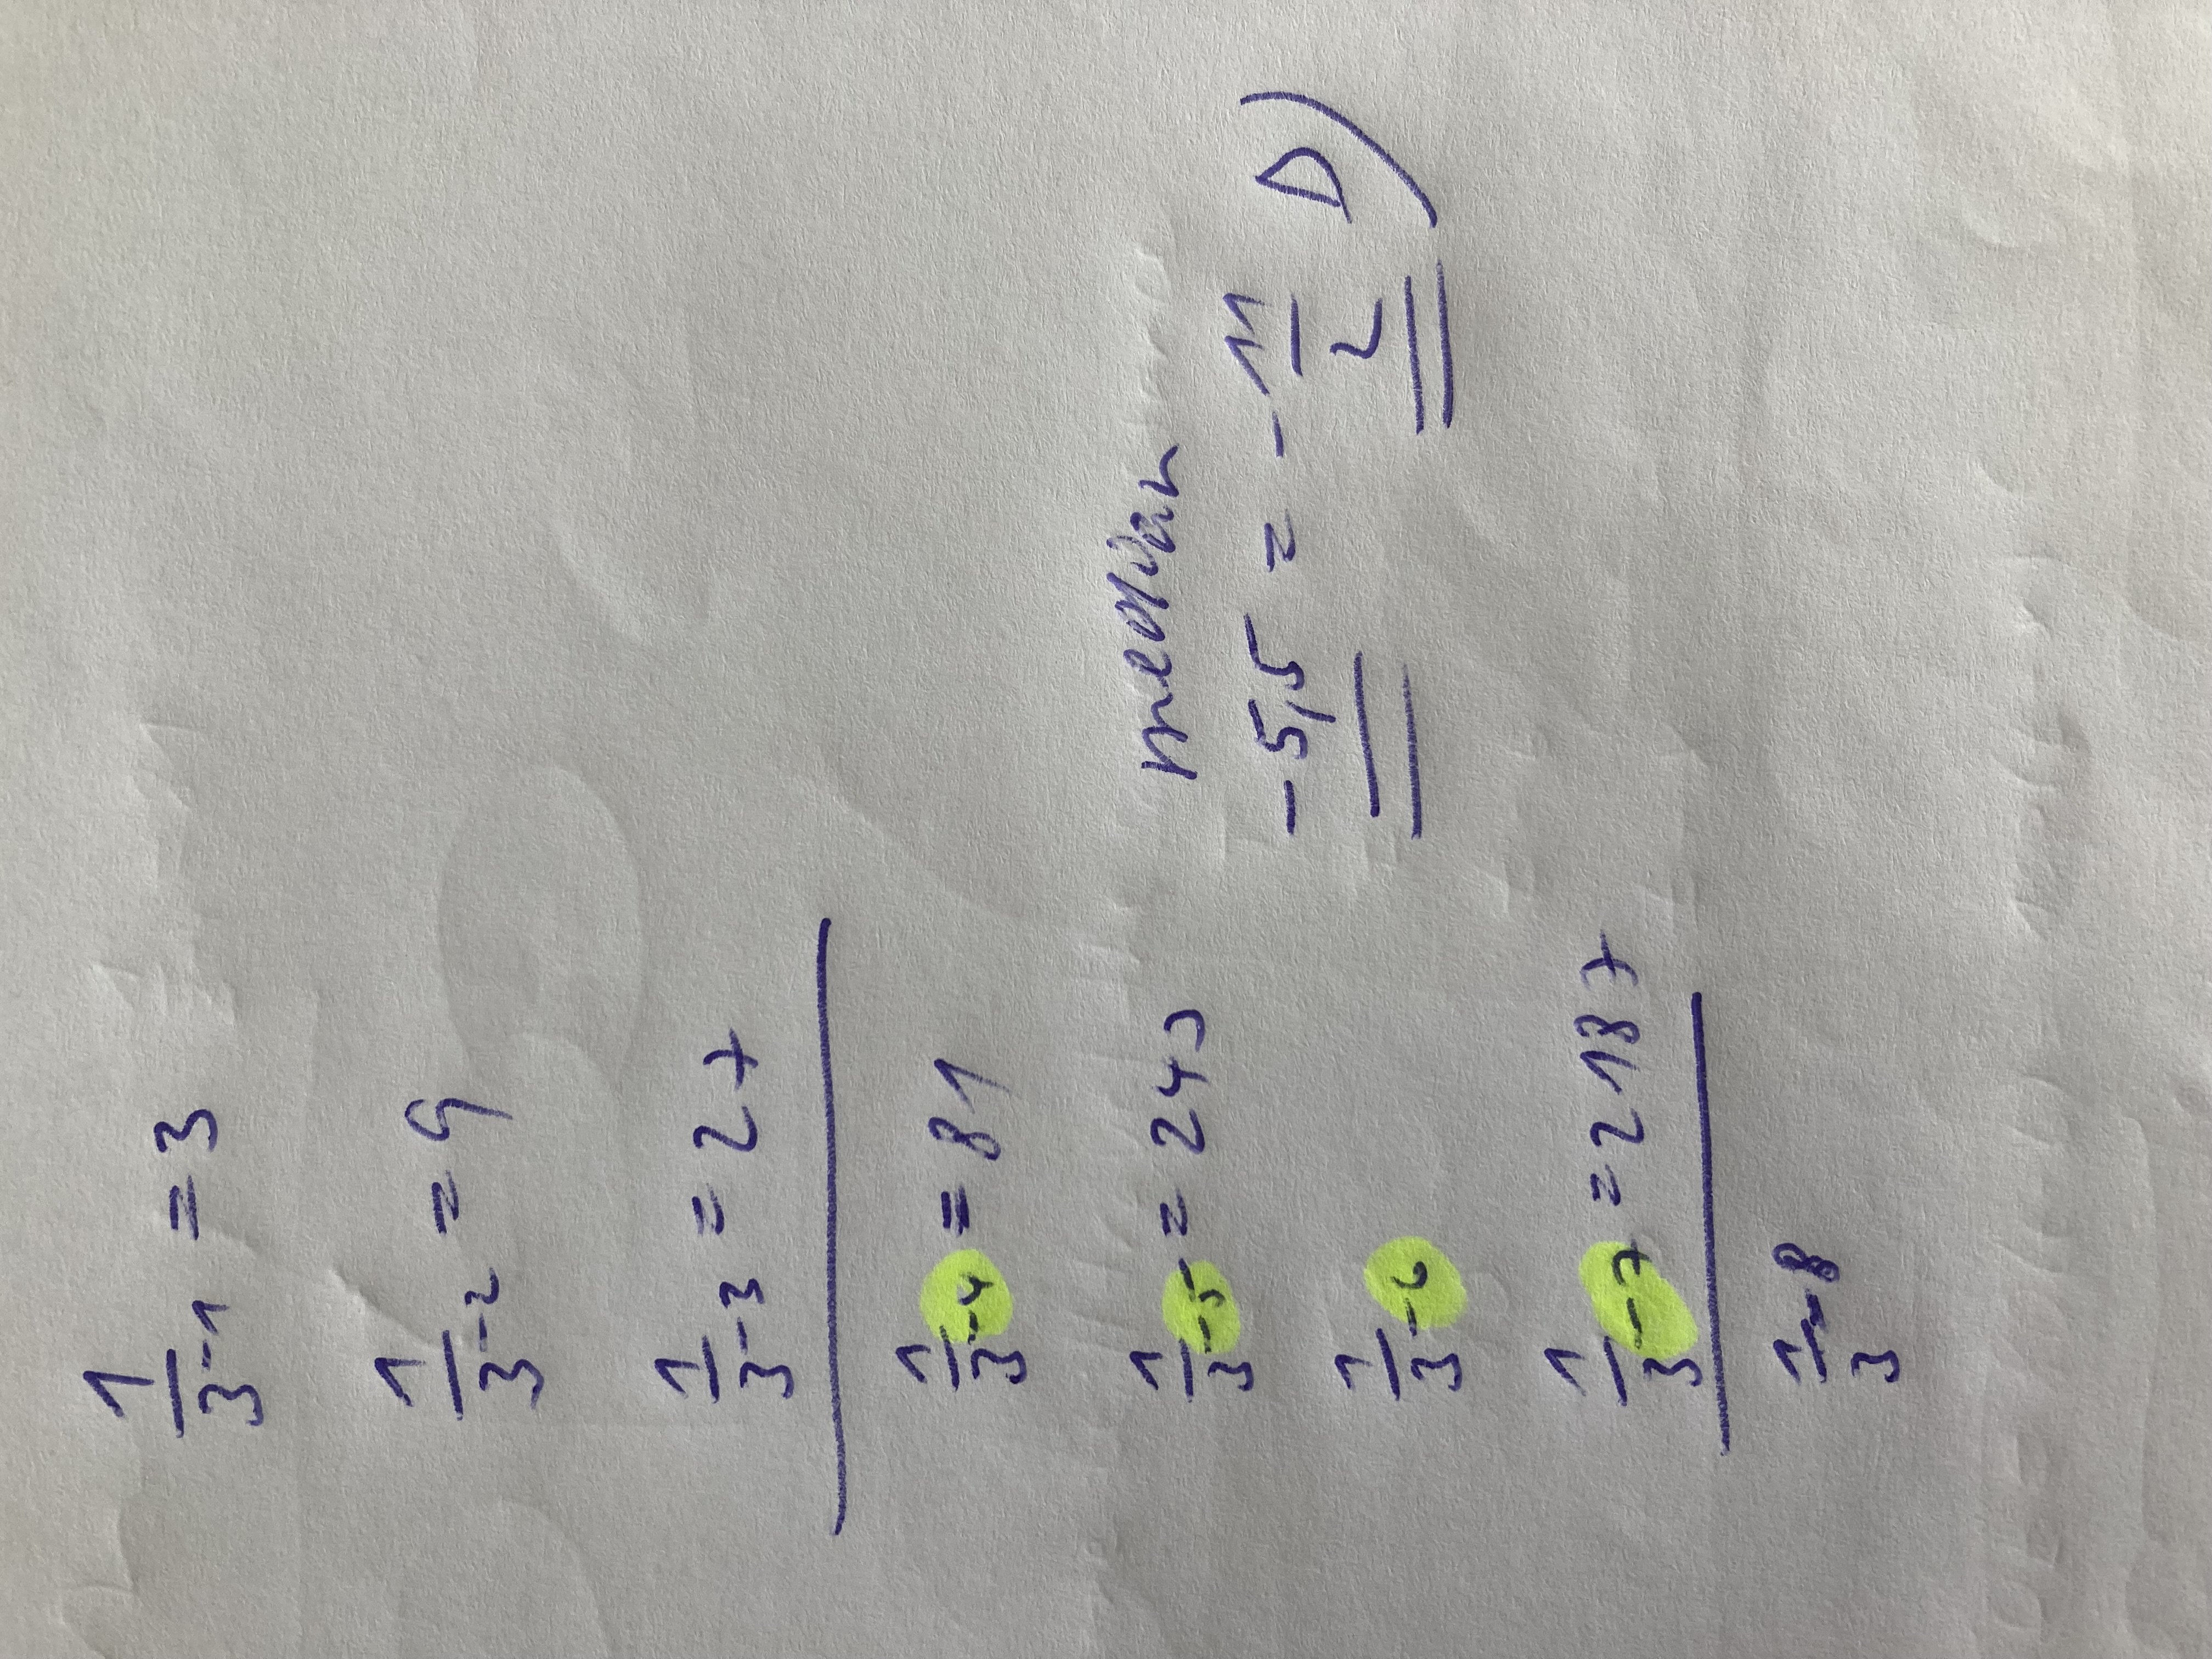 1/3^-1 = 3
1/3^-2 = 9
1/3^-3 = 27
1/3^-4 = 81
1/3^-5 = 243
1/3^-6
1/3^-7 = 2187
1/3^-8
median
-5,5 = -11/2 D)